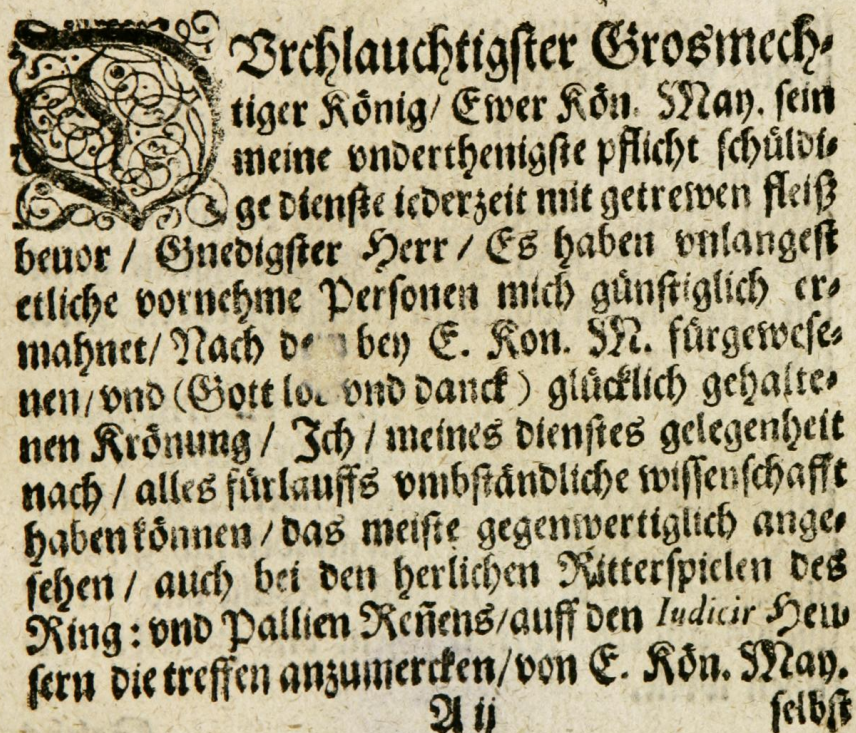 DVrchlauchtigster Grosmech-
tiger König/ Ewer Kön. May. sein
meine vnderthenigste pflicht schüldi-
ge dienste iederzeit mit getrewen fleiß
beuor / Gnedigster Herr / Es haben vnlangest
etliche vornehme Personen mich günstiglich er-
mahnet/ Nach bey E. Kon. M. fürgewese-
nen/ vnd (Gott vnd danck) glücklich gehalte-
nen Krönung / Jch / meines dienstes gelegenheit
nach / alles fürlauffs vmbständliche wissenschafft
haben können / das meiste gegenwertiglich ange-
sehen / auch bei den herlichen Ritterspielen des
Ring: vnd Pallien Reñens/ auff den Iudicir Hew-
sern die treffen anzumercken/ von E. Kön. May.
A ij selbst